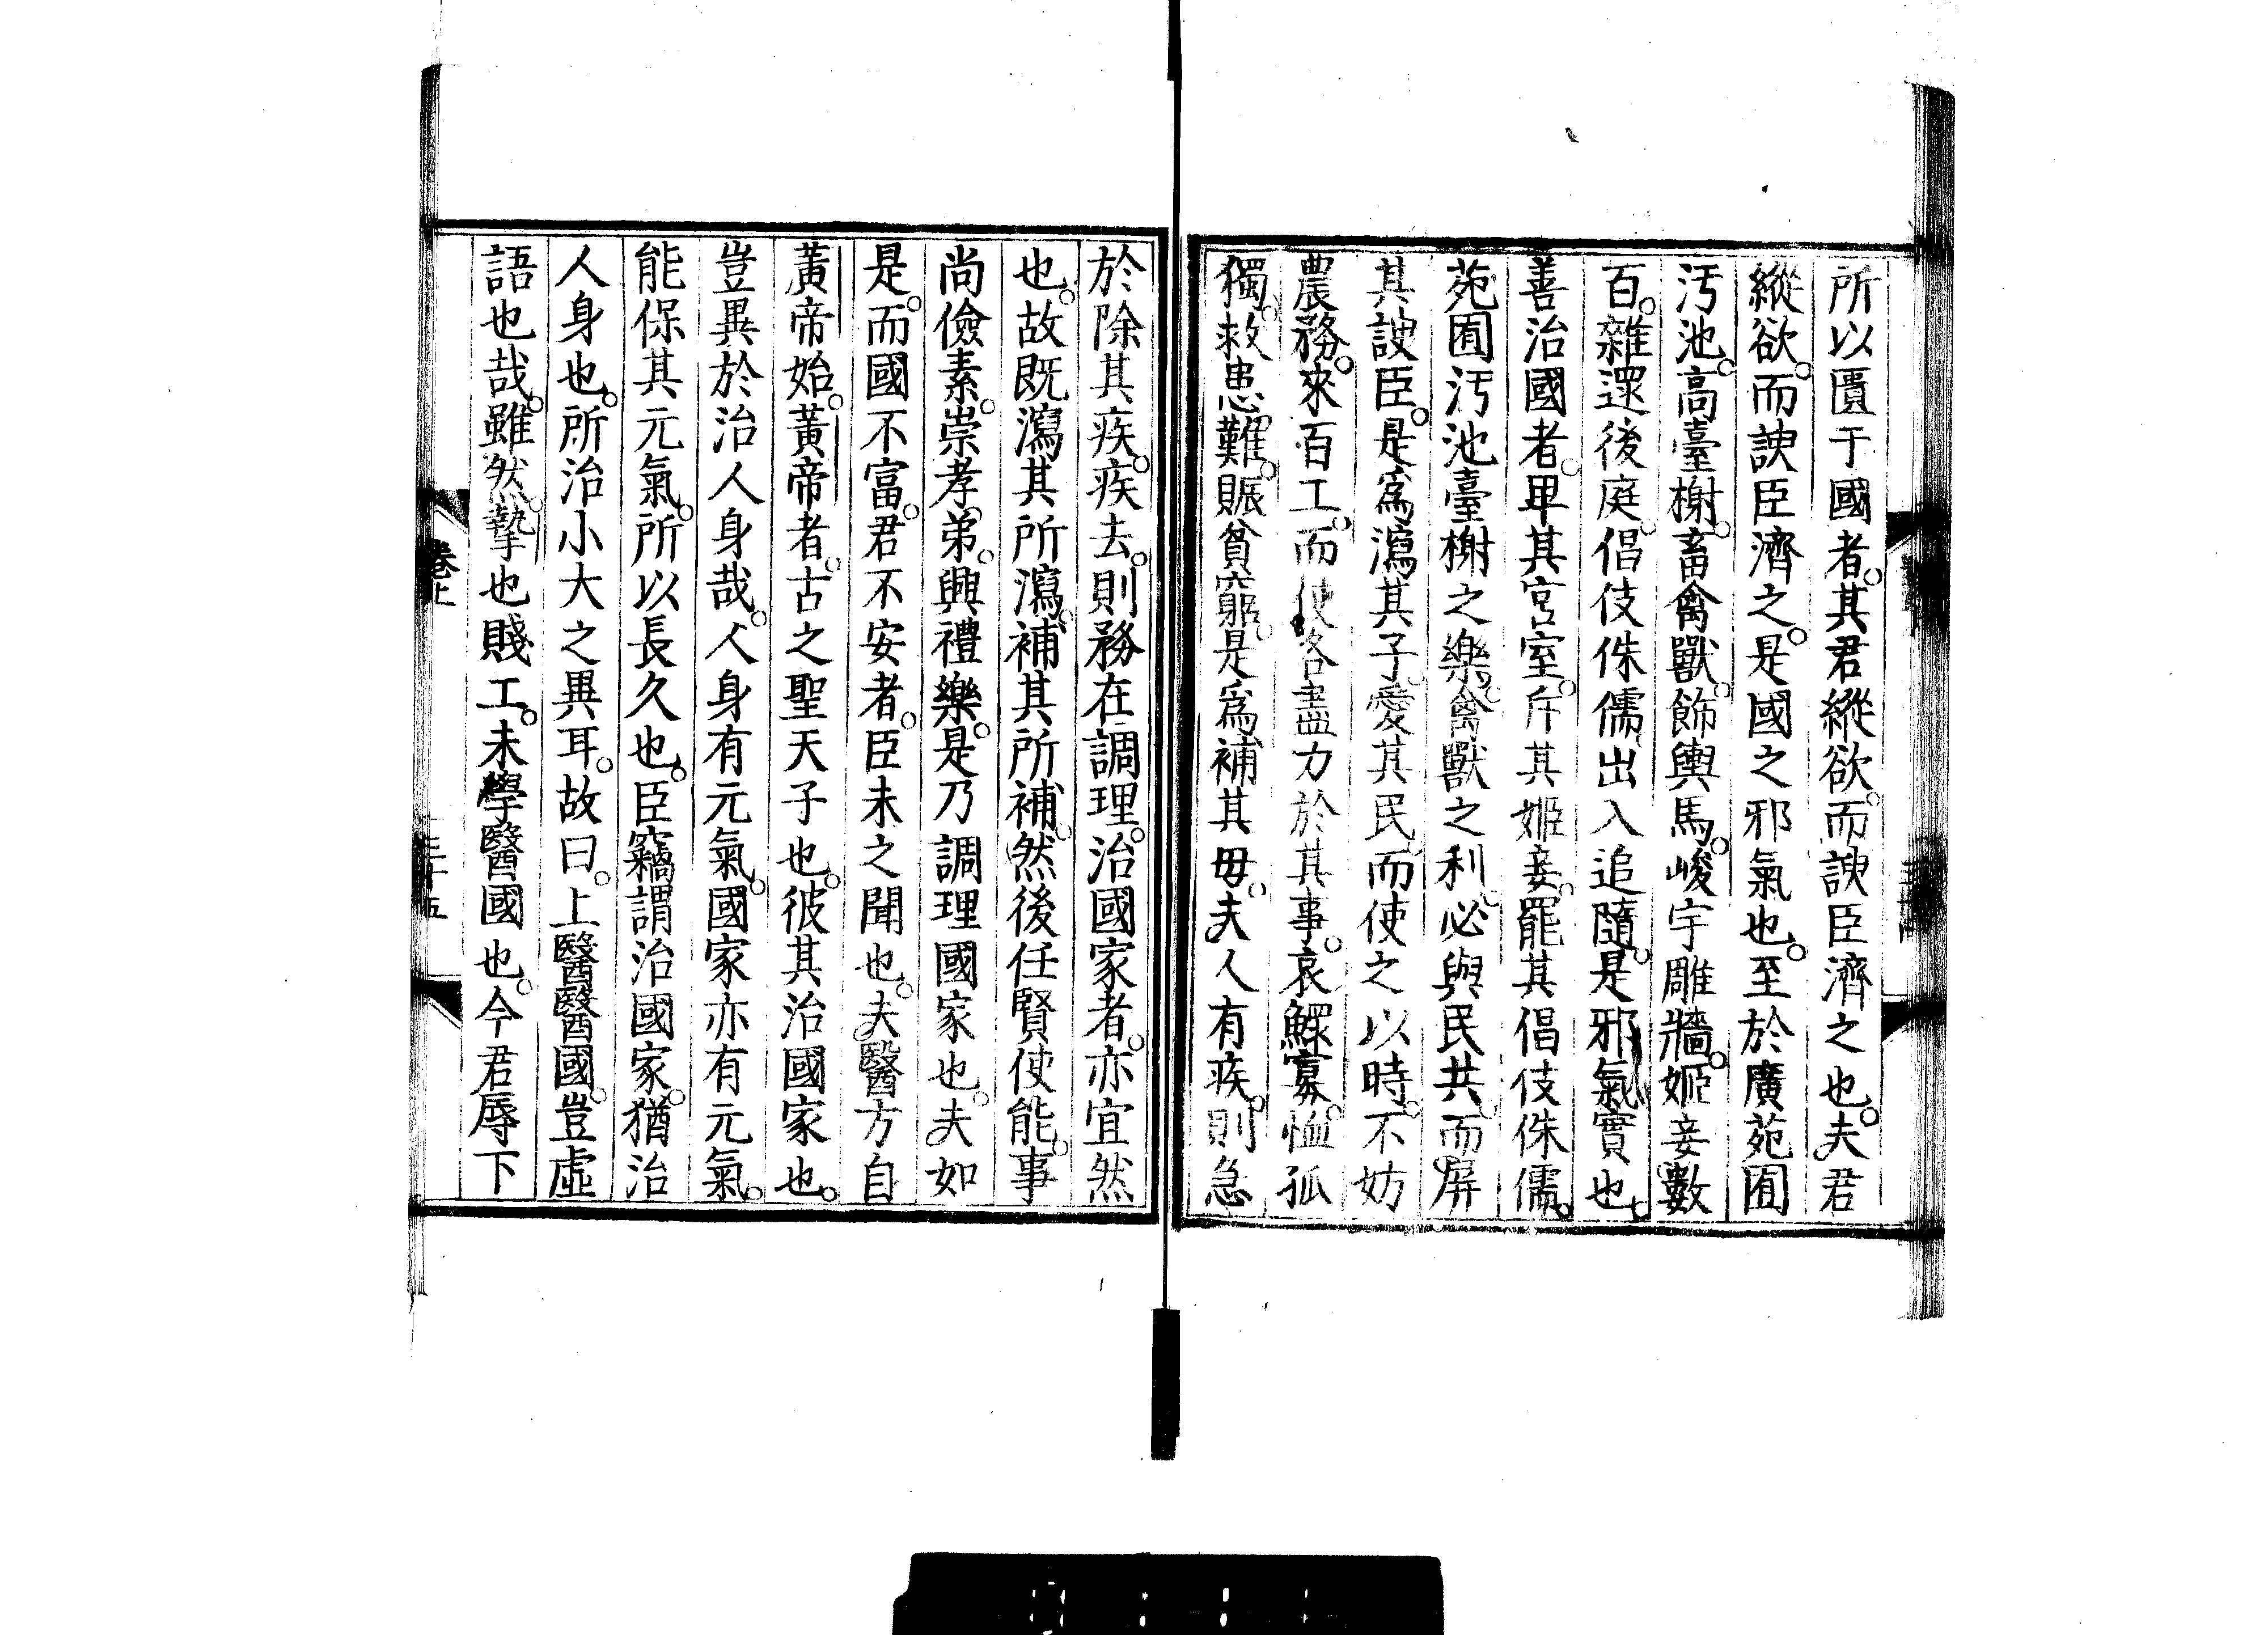 所以匱于國者。其君縱欲。而諛臣濟之也。夫君
縱欲。而諛臣濟之。是國之邪氣也。至於廣苑囿
汚池。高臺榭。畜禽獸。飾輿馬。峻宇雕牆。姬妾數
百。雜遝後庭。倡伎侏儒。出入追隨。是邪氣實也。
善治國者。卑其宮室。斥其姬妾。罷其倡伎侏儒。
苑囿汚池臺榭之樂。禽獸之利。必與民共。而屏
其諛臣。是爲瀉其子。愛其民。而使之以時。不妨
農務。來百工。而使各盡力於其事。哀鰥寡。恤孤
獨。救患難。賑貧窮。是爲補其母。夫人有疾。則急
於除其疾。疾去。則務在調理。治國家者。亦宜然
也。故既瀉其所瀉。補其所補。然後任賢使能。事
尚儉素。崇孝弟。興禮樂。是乃調理國家也。夫如
是。而國不富。君不安者。臣未之聞也。夫醫方自
黃帝始。黃帝者。古之聖天子也。彼其治國家也。
豈異於治人身哉。人身有元氣。國家亦有元氣。
能保其元氣。所以長久也。臣竊謂治國家。猶治
人身也。所治小大之異耳。故曰。上醫醫國。豈虛
語也哉。雖然。摯也賤工。未學醫國也。今君辱下
卷上
三十五